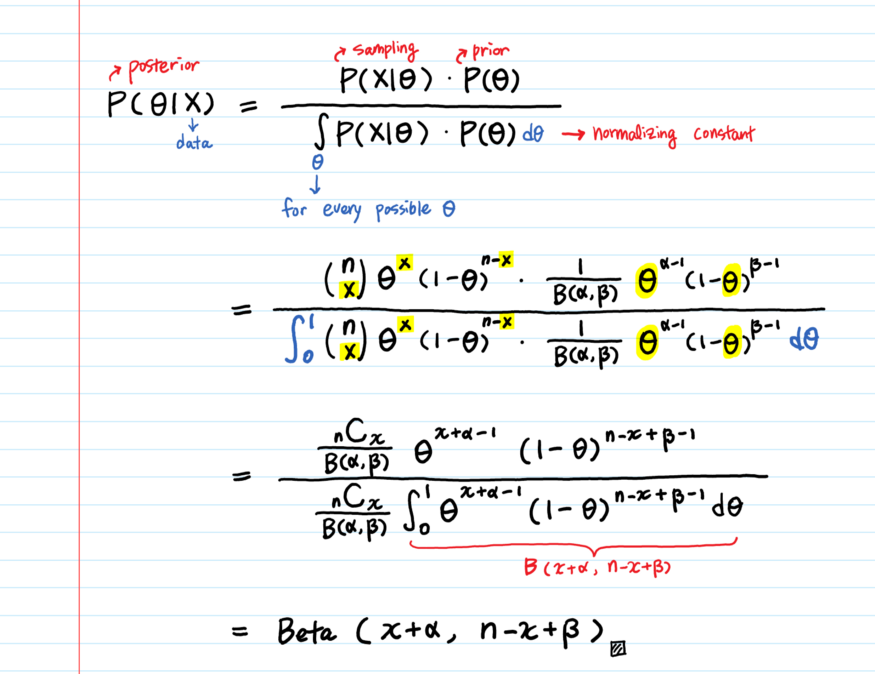 ↗ sampling ↗ prior
↗ posterior
P(X|θ) · P(θ)
P(θ|X) =
∫ P(X|θ) · P(θ) dθ → normalizing constant
↓
data
θ
↓
for every possible θ
(n x) θ^x (1-θ)^n-x · 1/B(α,β) θ^α-1 (1-θ)^β-1
=
∫₀¹ (n x) θ^x (1-θ)^n-x · 1/B(α,β) θ^α-1 (1-θ)^β-1 dθ
nCx/B(α,β) θ^x+α-1 (1-θ)^n-x+β-1
=
nCx/B(α,β) ∫₀¹ θ^x+α-1 (1-θ)^n-x+β-1 dθ
B(x+α, n-x+β)
= Beta (x+α, n-x+β)